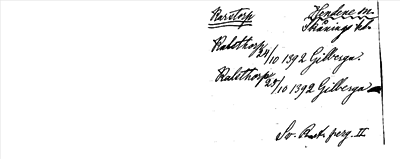 Rarstorp
Skånings hd.
Ralsthorp 24/10 1392 Gilberga.
Ralsthorp 25/10 1392 Gilberga
Sv. Riks. perg. II